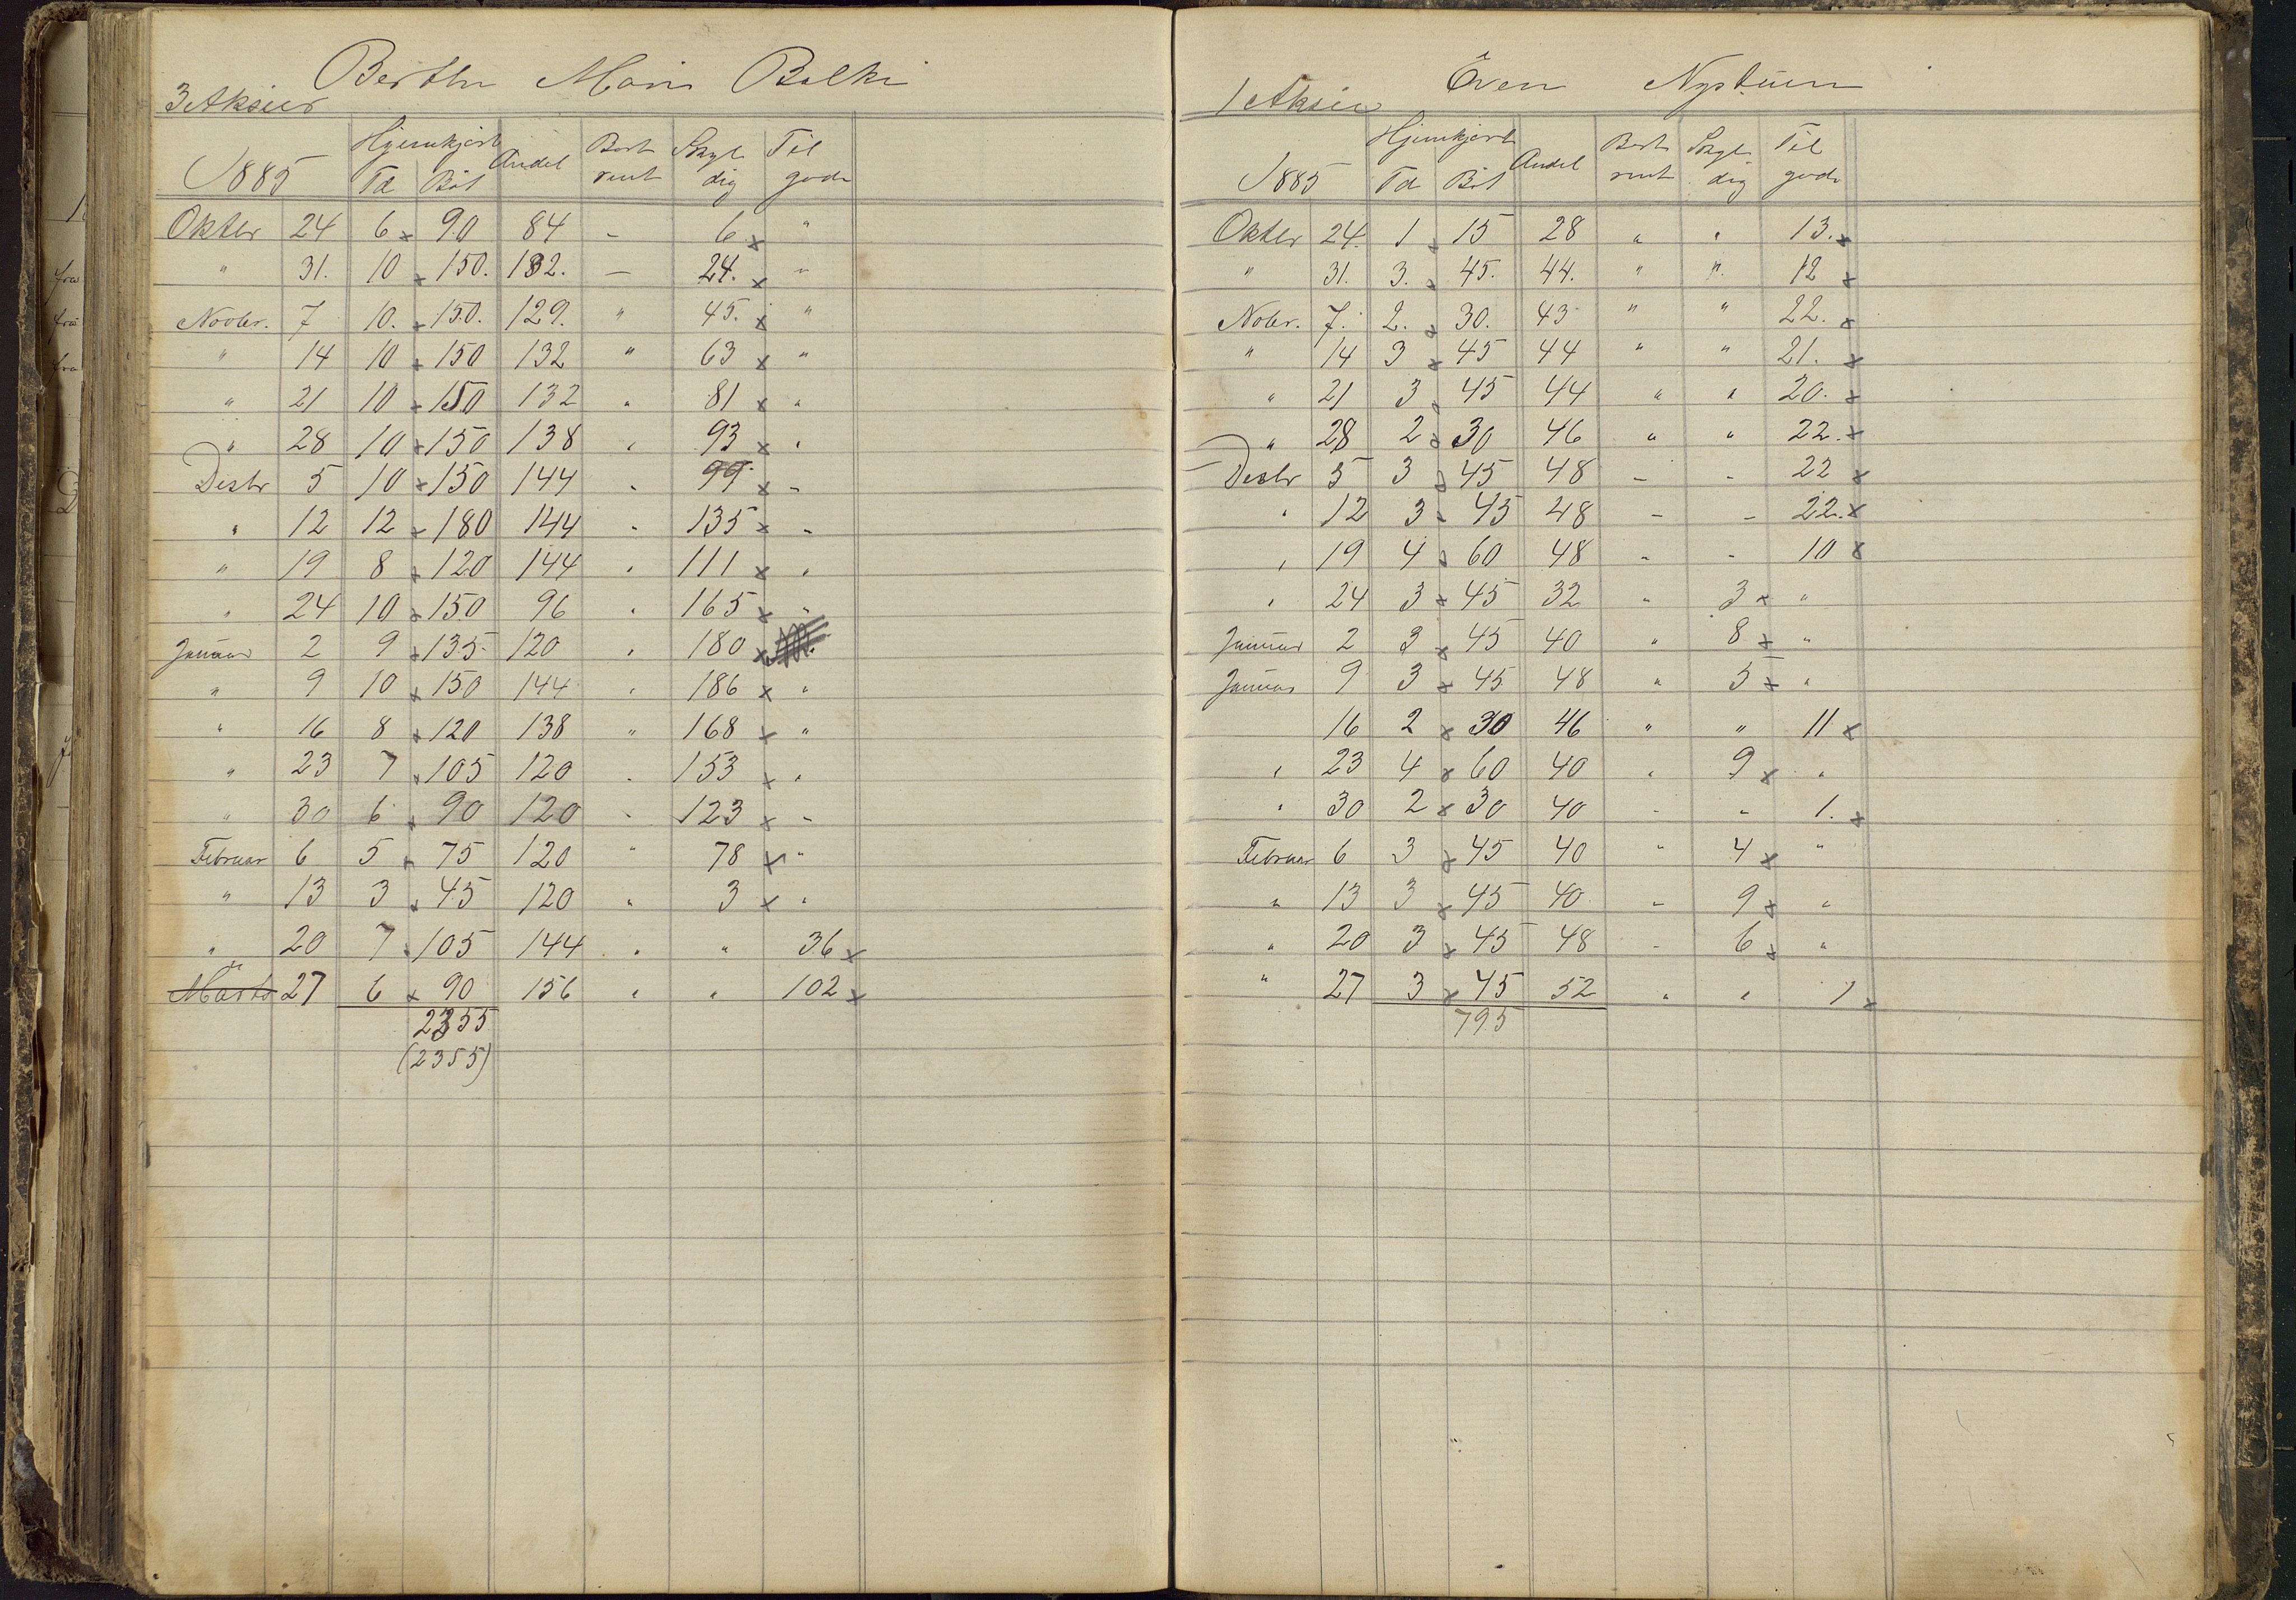 Berthe Mari Balki
3 Aksier
Hjemkjørt
1885 Td Bøt Andel Bort rent Skyl dig Til gode
Oktbr 24 6 x 90 84 - 6 x "
" 31. 10 x 150. 132. - 24. x "
Novbr. 7 10. x 150. 129. " 45. x "
" 14 10 x 150 132 " 63 x "
" 21 10 x 150 132 " 81 x "
" 28 10 x 150 138 " 93 x "
Desbr 5 10 x 150 144 " 99 x "
" 12 12 x 180 144 " 135 x "
" 19 8 x 120 144 " 111 x "
" 24 10 x 150 96 " 165 x "
Januar 2 9 x 135 120 " 180 x
" 9 10 x 150 144 " 186 x "
" 16 8 x 120 138 " 168 x "
" 23 7 x 105 120 " 153 x "
" 30 6 x 90 120 " 123 x "
Februar 6 5 x 75 120 " 78 x "
" 13 3 x 45 120 " 3 x "
" 20 7 x 105 144 " " 36 x
" Marts 27 6 x 90 156 " " 102 x
2355
(2355)
Even Nystuen
1 Aksie
Hjemkjørt
1885 Td Bøt Andel Bort rent Skyl dig Til gode
Oktbr 24. 1 x 15 28 " " 13. x
" 31. 3. x 45. 44. " " 12 x
Nobr. 7. 2. x 30. 43 " " 22. x
" 14 3 x 45 44 " " 21. x
" 21 3 x 45 44 " " 20. x
" 28 2 x 30 46 " " 22. x
Desbr 5 3 x 45 48 - - 22 x
" 12 3 x 45 48 - - 22. x
" 19 4 x 60 48 - - 10 x
" 24 3 x 45 32 " 3 x "
Januar 2 3 x 45 40 " 8 x "
Januar 9 3 x 45 48 " 5 x "
16 2 x 30 46 " " 11 x
" 23 4 x 60 40 " 9 x "
" 30 2 x 30 40 - " 1. x
Februar 6 3 x 45 40 " 4 x "
" 13 3 x 45 40 - 9 x "
" 20 3 x 45 48 - 6 x "
" 27 3 x 45 52 " " 1 x
795